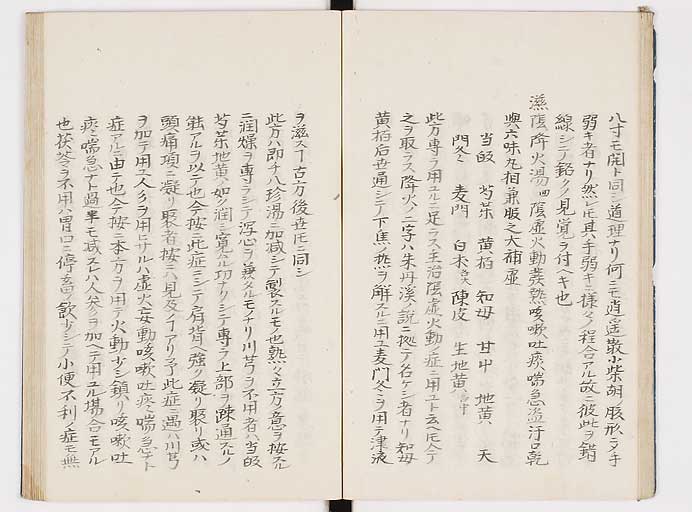 八寸モ開ト同シ道理ナリ何ニモ逍遥散小柴胡ノ腹形ヨリ手
弱キ者ナリ然レ𪜈其手弱キニ様々ノ程合アル故ニ彼此ヲ錯
綜シテ銘々ノ見覚ヲ付ヘキ也
滋陰降火湯 四 陰虚火動発熱咳嗽吐痰喘急盗汗口乾
與六味丸相兼服之大補虚
当皈 芍薬 黄栢 知母 甘中 地黄 天
門冬 麦門 白朮 各大 陳皮 生地黄 各中
此方専ラ用ユルニ足ラス主治陰虚火動ノ症ニ用ユト云ヘ𪜈今
之ヲ取ラス降火ノ二字ハ朱丹溪ノ説ニ拠テ名ケシ者ナリ知母
黄栢后世通シテ下焦ノ熱ヲ解スルニ用ユ麦門冬ヲ用テ津液
ヲ滋スヿ古方後世𪜈ニ同シ
此方ハ即チ八珍湯ニ加減シテ製スルモノ也熟々立方ノ意ヲ按スル
ニ潤燥ヲ専ラシテ瀉心ヲ兼タルモノナリ川芎ヲ不用者ハ当皈
芍薬地黄ノ如ク潤シ寛ルノ功ナクシテ専ラ上部ヲ疎通スルノ
能アルヲ以テ也今按ニ此症ニシテ肩背ヘ強ク凝リ聚リ或ハ
頭痛項ニ凝リ聚者按ニハ見及フヿアリ予此症ニ遇ハ川芎
ヲ加テ用ユ人参ヲ用ヒサルハ虚火妄動咳嗽吐痰喘急ナト
症アルニ由テ也今按ニ本方ヲ用テ火動少シ鎮リ咳嗽吐
痰喘急ナト過半モ减スレハ人参ヲ加ヘテ用ユル場合モアル
也茯苓ヲ不用ハ胃口ニ停畜ノ飲少シテ小便不利ノ症モ無